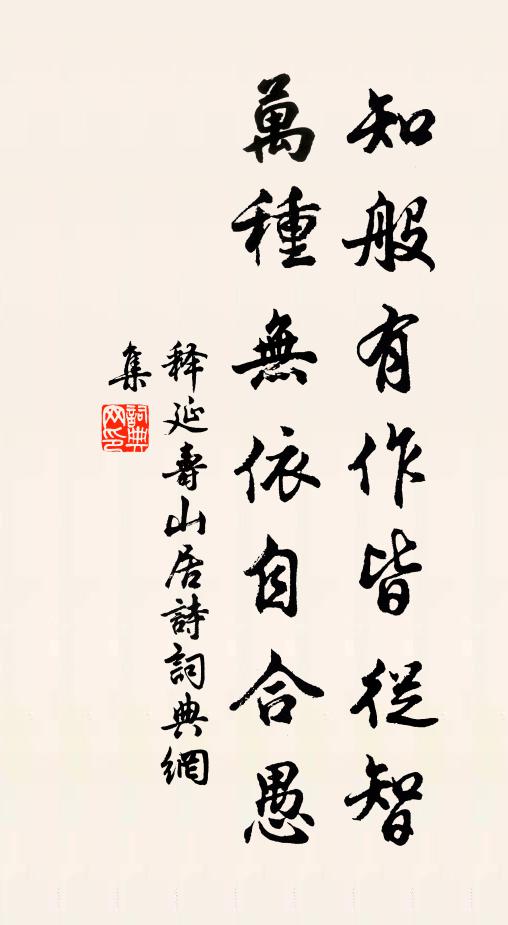 知般有作皆從智
萬種無依自合愚
释延壽山居詩詞典網
集
詞典网印